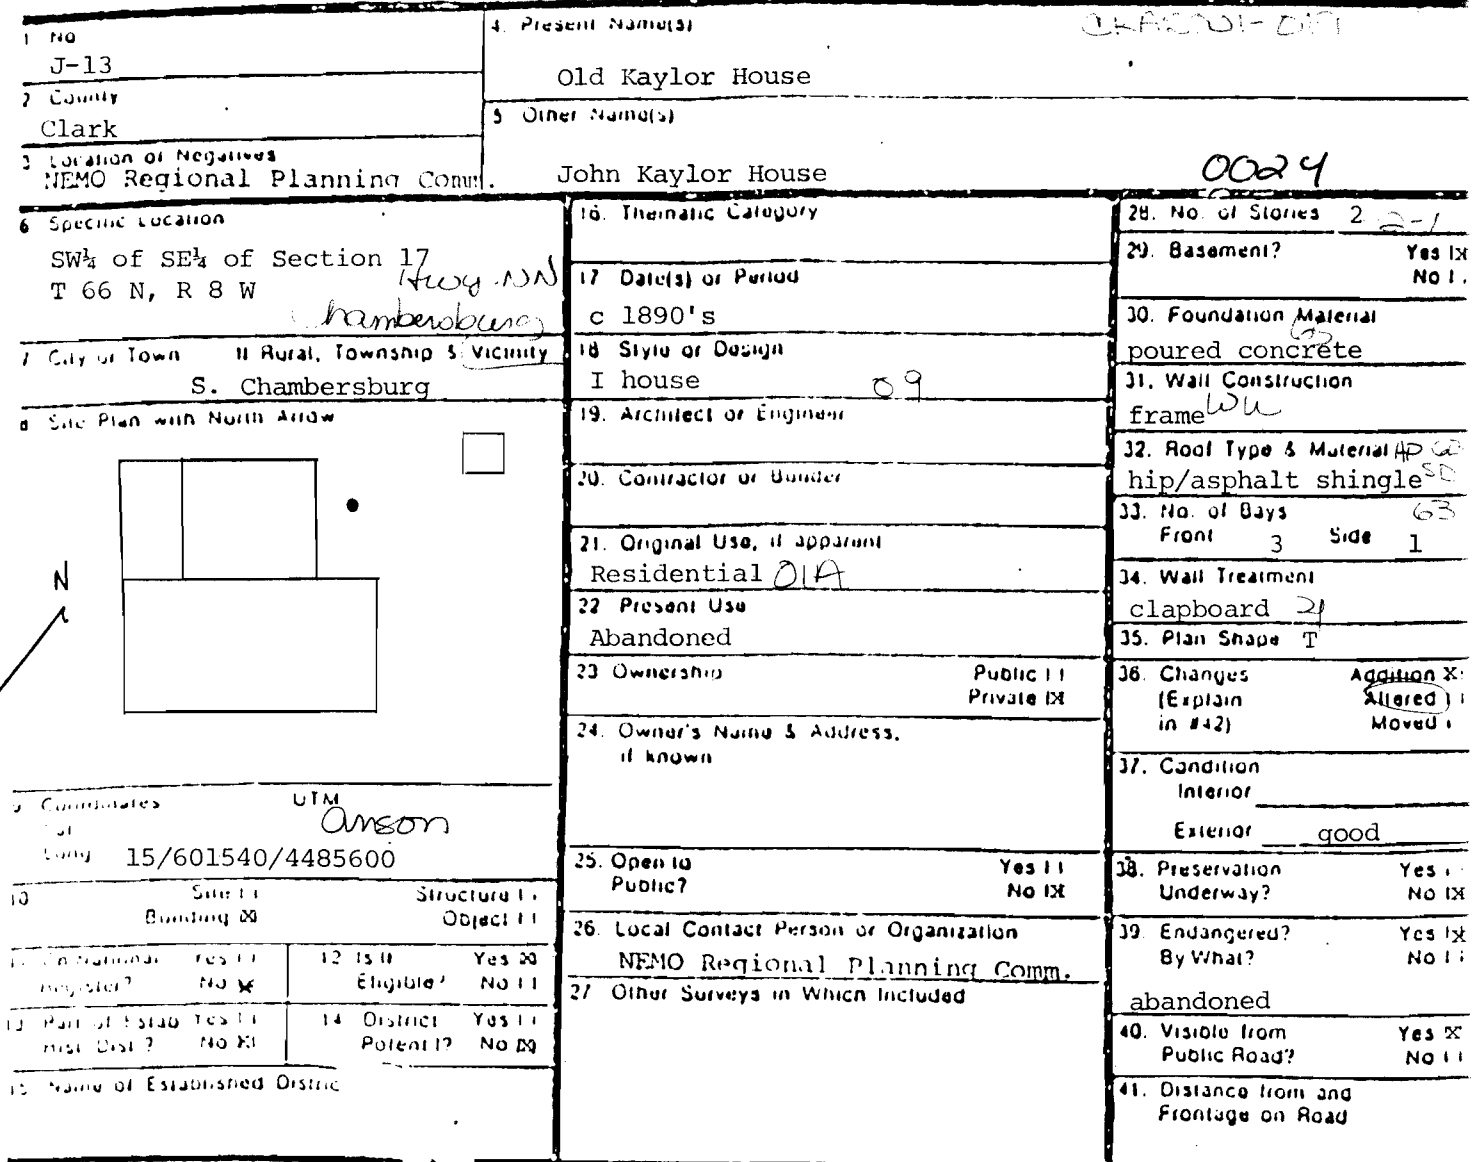 1 No
J-13
2 County
Clark
3 Location of Negatives
NEMO Regional Planning Comm.
4. Present Name(s)
Old Kaylor House
5 Other Name(s)
John Kaylor House
0024
6 Specific Location
SW¼ of SE¼ of Section 17
T 66 N, R 8 W
Hwy. NN
Chambersburg
7 City or Town If Rural, Township & Vicinity
S. Chambersburg
8 Site Plan with North Arrow
N
9 Coordinates UTM
Lat
Long
anson
15/601540/4485600
10 Site [ ] Structure [ ]
Building [X] Object [ ]
11 On National Register? Yes [ ] No [X]
12 Is It Eligible? Yes [X] No [ ]
13 Part of Estab Hist. Dist.? Yes [ ] No [X]
14 District Potent'l? Yes [ ] No [X]
15 Name of Established District
16. Thematic Category
17 Date(s) or Period
c 1890's
18 Style or Design
I house 09
19. Architect or Engineer
20. Contractor or Builder
21. Original Use, if apparent
Residential 01A
22 Present Use
Abandoned
23 Ownership Public [ ]
Private [X]
24. Owner's Name & Address,
if known
25. Open to Yes [ ]
Public? No [X]
26. Local Contact Person or Organization
NEMO Regional Planning Comm.
27 Other Surveys in Which Included
28. No. of Stories 2 2-1
29. Basement? Yes [X]
No [ ]
30. Foundation Material
poured concrete
31. Wall Construction
frame WU
32. Roof Type & Material
hip/asphalt shingle
33. No. of Bays 63
Front 3 Side 1
34. Wall Treatment
clapboard 21
35. Plan Shape T
36. Changes Addition X
(Explain Altered [ ]
in #42) Moved [ ]
37. Condition
Interior
Exterior good
38. Preservation Yes [ ]
Underway? No [X]
39. Endangered? Yes [X]
By What? No [ ]
abandoned
40. Visible from Yes X
Public Road? No [ ]
41. Distance from and
Frontage on Road